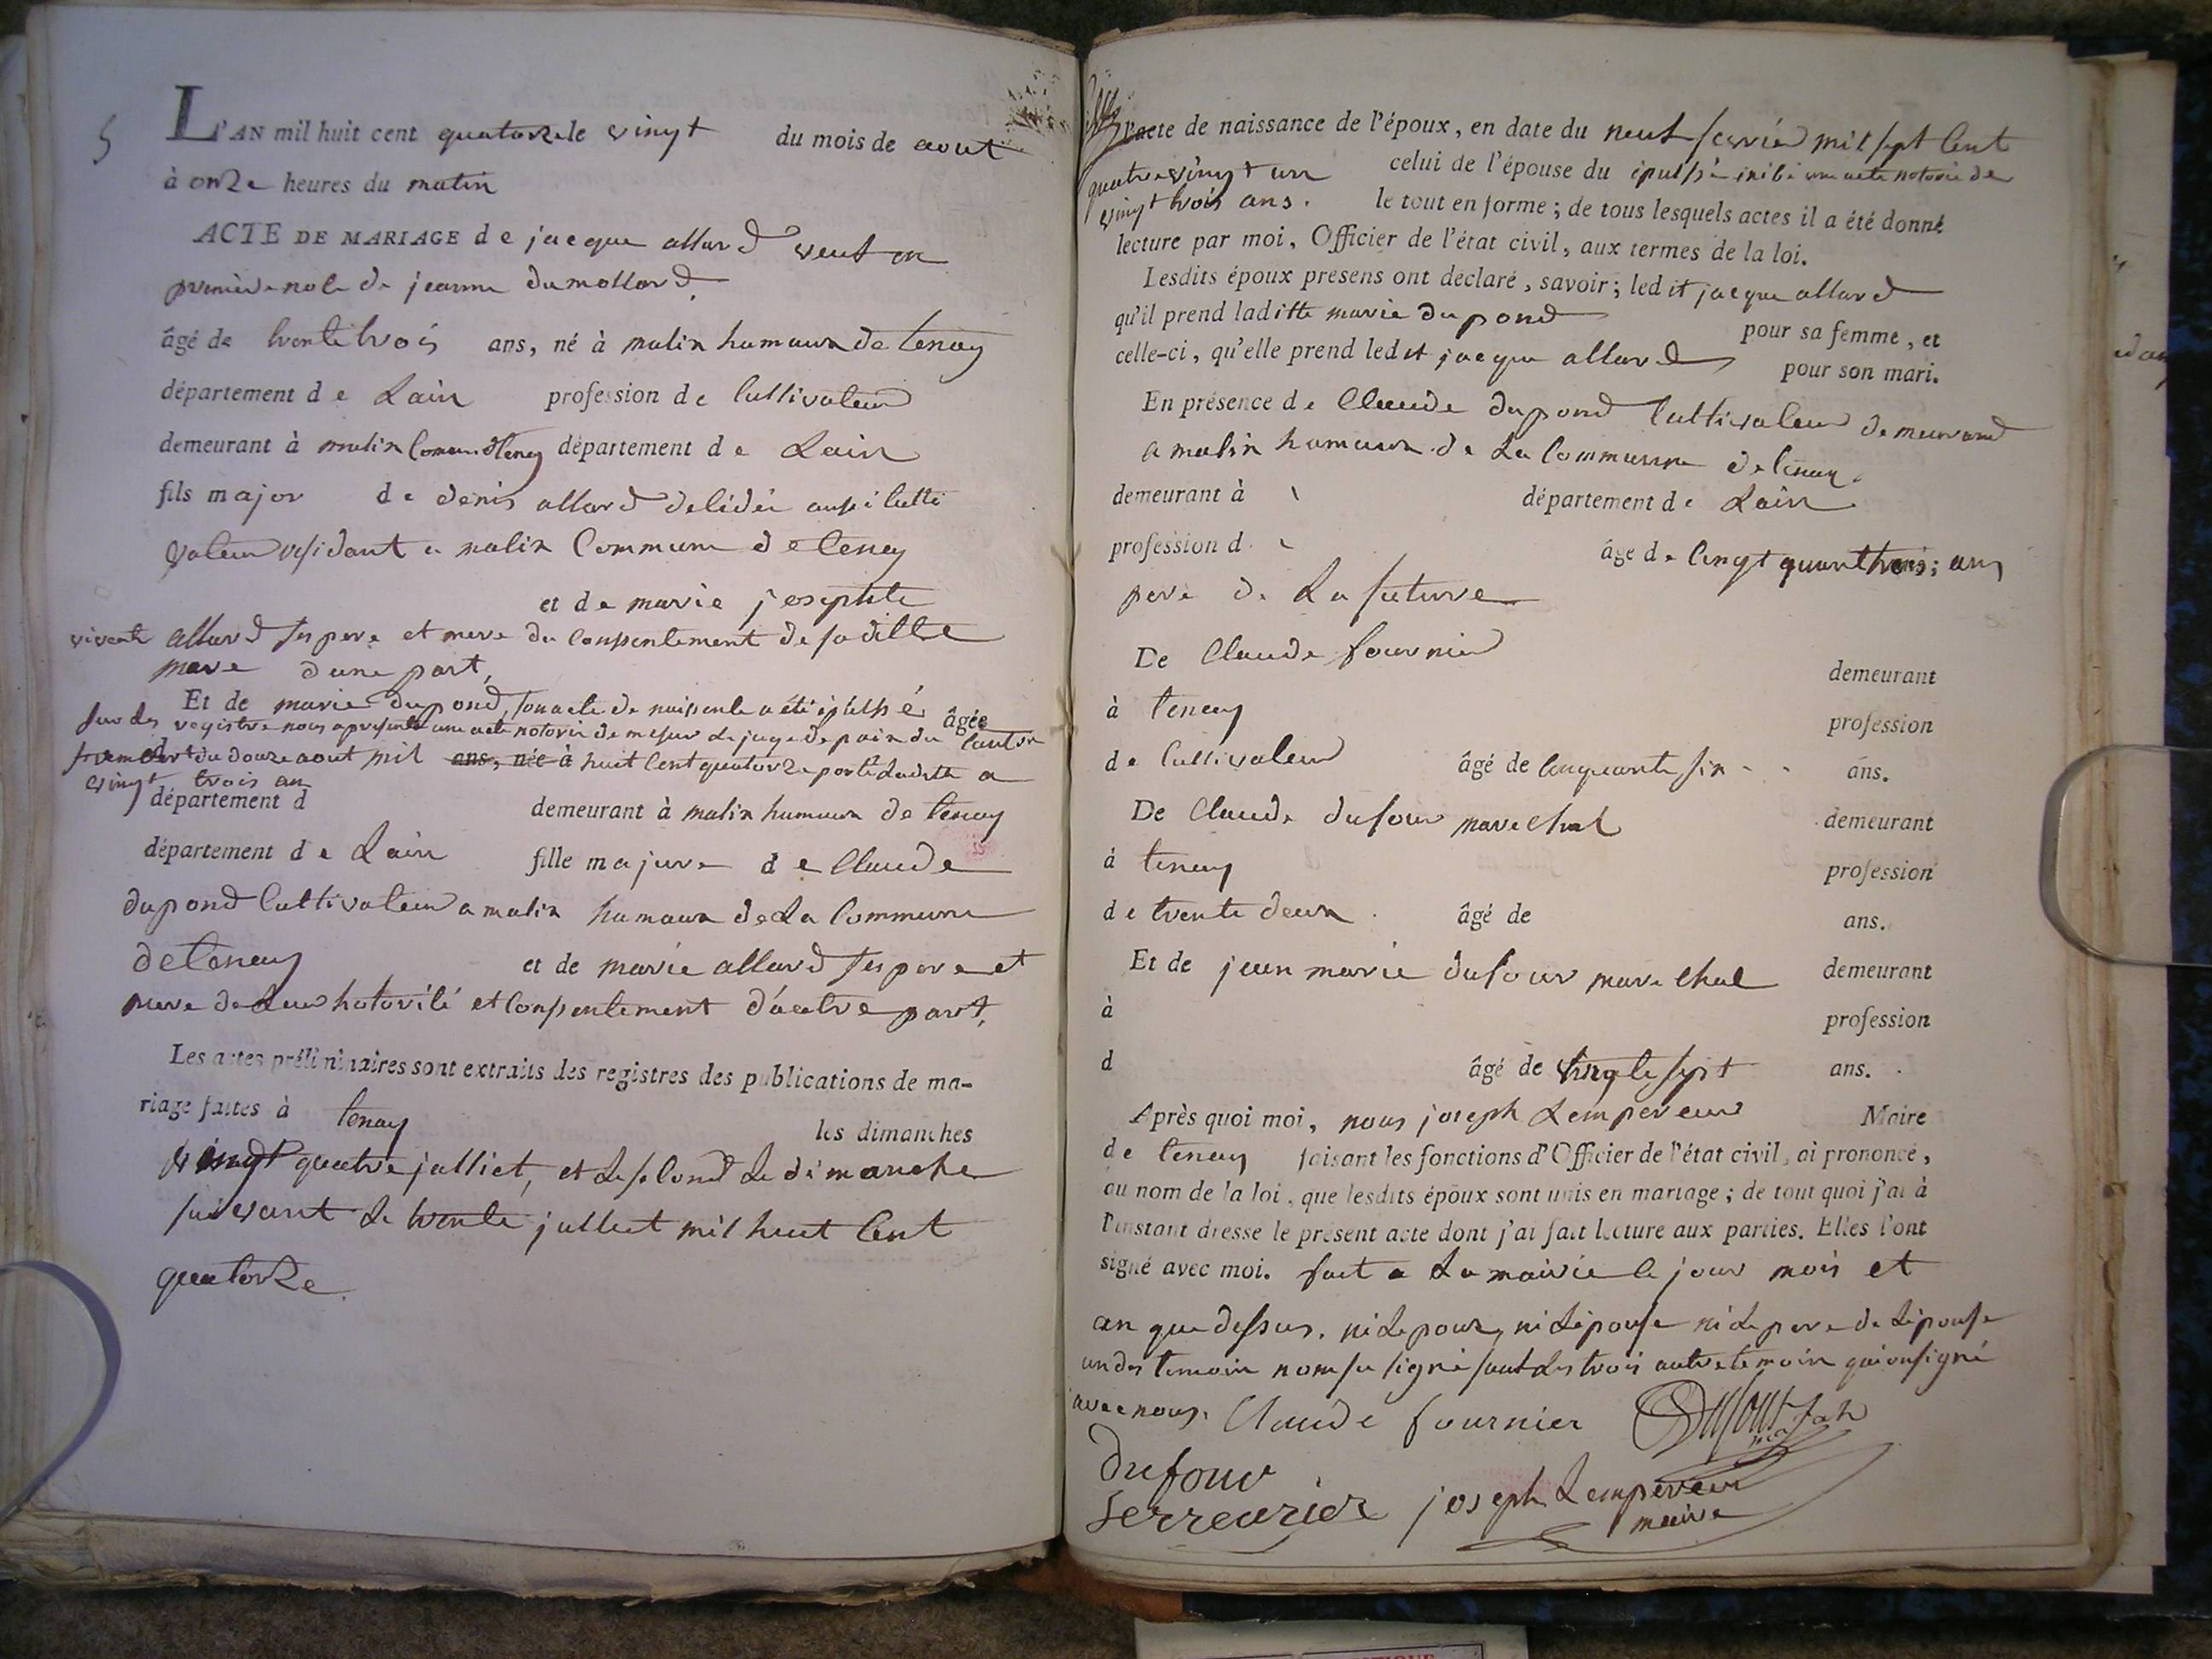 5
L'AN mil huit cent quatorze le vingt du mois de aout
à onze heures du matin
ACTE DE MARIAGE de jacque allard veuf en
premiere noce de jeanne dumollard
âgé de trente trois ans, né à malix hamaux de tenay
département de Lain profession de Cultivateur
demeurant à malix Comune de tenay département de Lain
fils major de denis allard délédé aussi culti
vateur résidant a malix Commune de tenay
et de marie josephte
vivente allard ses pere et mere du consentement de sa ditte
mere dune part,
Et de marie dupond, son acte de naissance a été âgée
sur les registre nous a présenté une acte notorié de mesieur le juge de paix du canton
du douze aout mil ans, née à huit cent quatorze porté laditte a
vingt trois an
département d demeurant à malix hamaux de tenay
département de Lain fille majure de Claude
dupond Cultivateur a malix hamaux de La Commune
de tenay et de marie allard ses pere et
mere de Leur hotorité et consentement d'autre part,
Les actes préliminaires sont extraits des registres des publications de ma-
riage faites à tenay les dimanches
vingt quatre julliet, et Le second Le dimanche
suivant Le trente julliet mil huit Cent
quatorze.
l'acte de naissance de l'époux, en date du neuf fevrier mil sept Cent
quatre vingt un celui de l'épouse du une acte notorié de
vingt trois ans. le tout en forme; de tous lesquels actes il a été donné
lecture par moi, Officier de l'état civil, aux termes de la loi.
Lesdits époux présens ont déclaré, savoir; ledit jacque allard
qu'il prend laditte marie dupond pour sa femme, et
celle-ci, qu'elle prend ledit jacque allard pour son mari.
En présence de Claude dupond Cultivateur demeurand
a malix hamaux de La Commune de tenay.
demeurant à département de Lain
profession d âgé de ans
pere de La future
De Claude fournier demeurant
à tenay profession
de Cultivateur âgé de cinquante six ans.
De Claude dufour marechal demeurant
à tenay profession
de trente deux âgé de ans.
Et de jean marie dufour marechal demeurant
à profession
d âgé de vingt sept ans.
Après quoi moi, nous joseph Lempereur Maire
de tenay faisant les fonctions d'Officier de l'état civil, ai prononcé,
au nom de la loi, que lesdits époux sont unis en mariage; de tout quoi j'ai à
l'instant dressé le présent acte dont j'ai fait lecture aux parties. Elles l'ont
signé avec moi. fait a La mairie le jour mois et
an que dessus. ni Lepoux, ni Lépouse ni Le pere de Lépouse
un des temoin nom su signé sauf Les trois autre temoin qui on signé
avec nous. Claude fournier Dufour
dufour
serreurier joseph Lempereur
maire